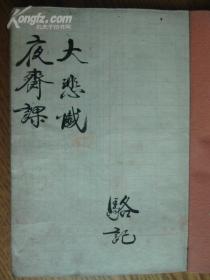 大悲懴
夜齋課
駱記
Kongfz.com
孔夫子旧书网